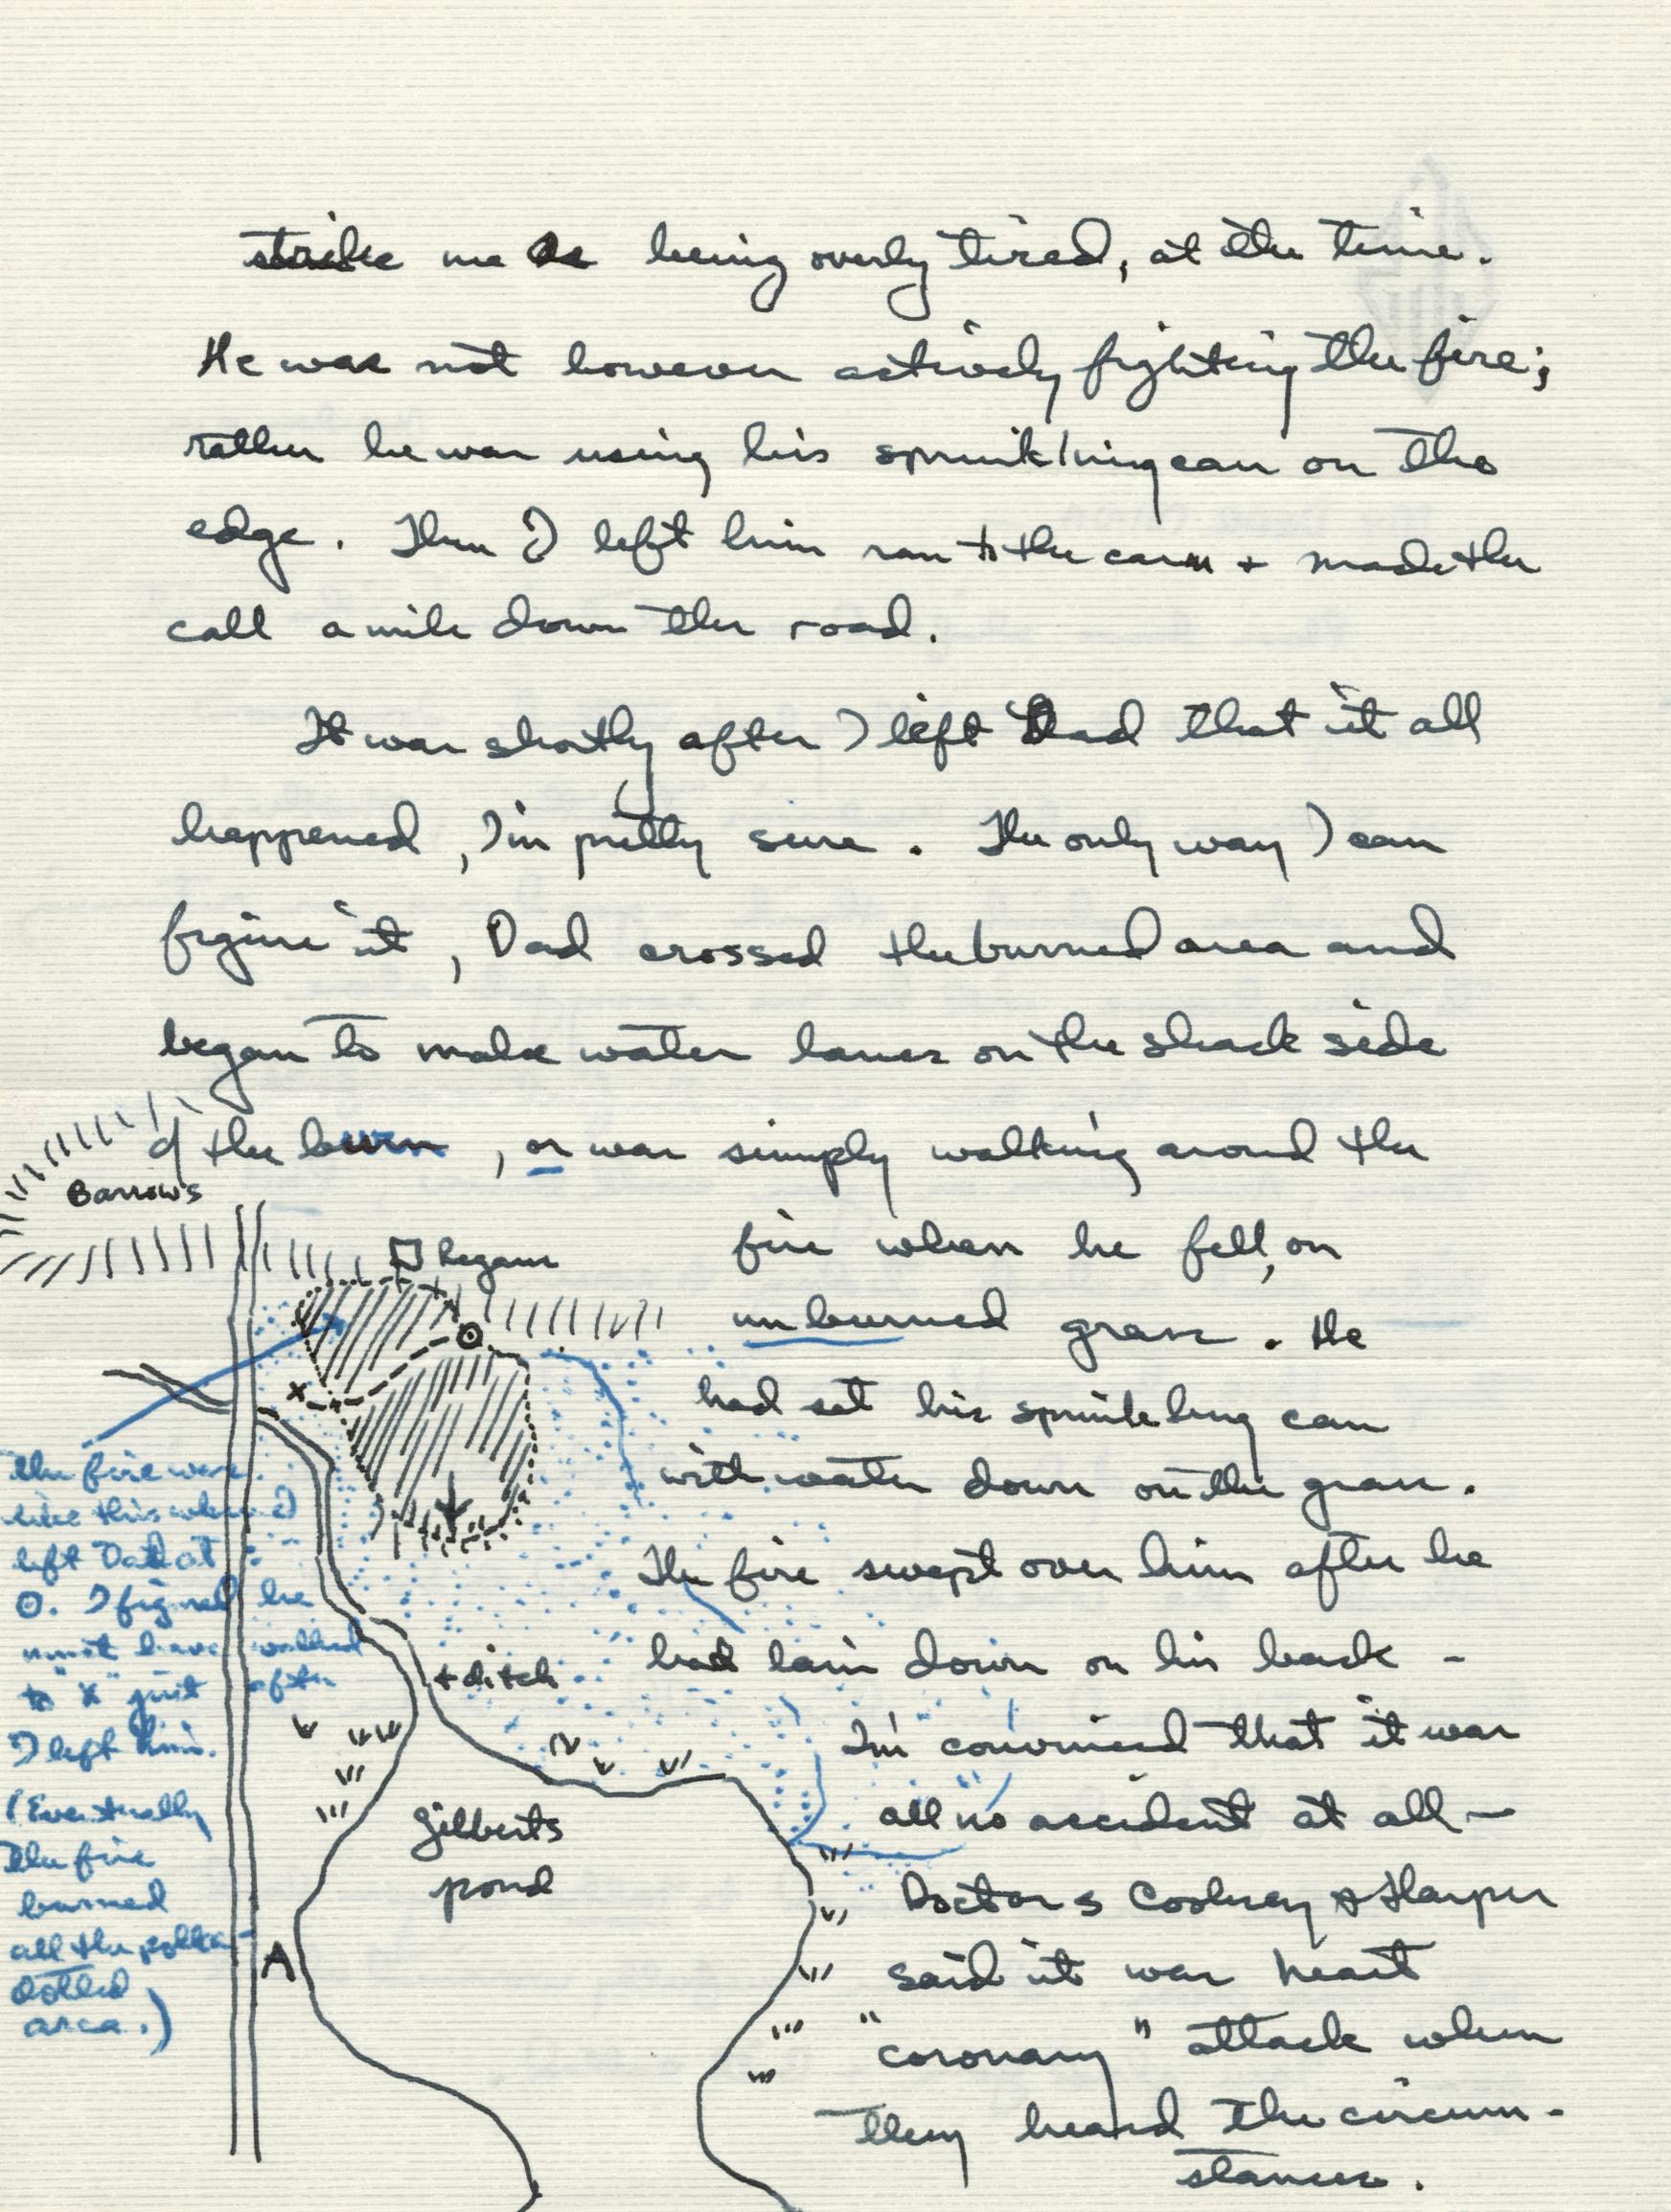 strike me as being overly tired, at the time.
He was not however actively fighting the fire;
rather he was using his sprinklning can on the
edge. Then I left him ran to the car + made the
call a mile down the road.
It was shortly after I left Dad that it all
happened, I'm pretty sure. The only way I can
figure it, Dad crossed the burned area and
began to make water lanes on the shack side
of the burn, or was simply walking around the
fire when he fell, on
unburned grass. He
had set his sprinkling can
with water down on the grass.
The fire swept over him after he
had lain down on his back -
I'm convinced that it was
all no accident at all -
Doctors Cooksey & Harper
said it was heart
"coronary" attack when
they heard the circum-
stances.
Barrows
Regans
the fire was
like this when I
left Dad at
⊙. I figured he
must have walked
to "x" just after
I left him.
(Eventually
the fire
burned
all the polka-
dotted
area.)
x
+ ditch
Gilberts
pond
A